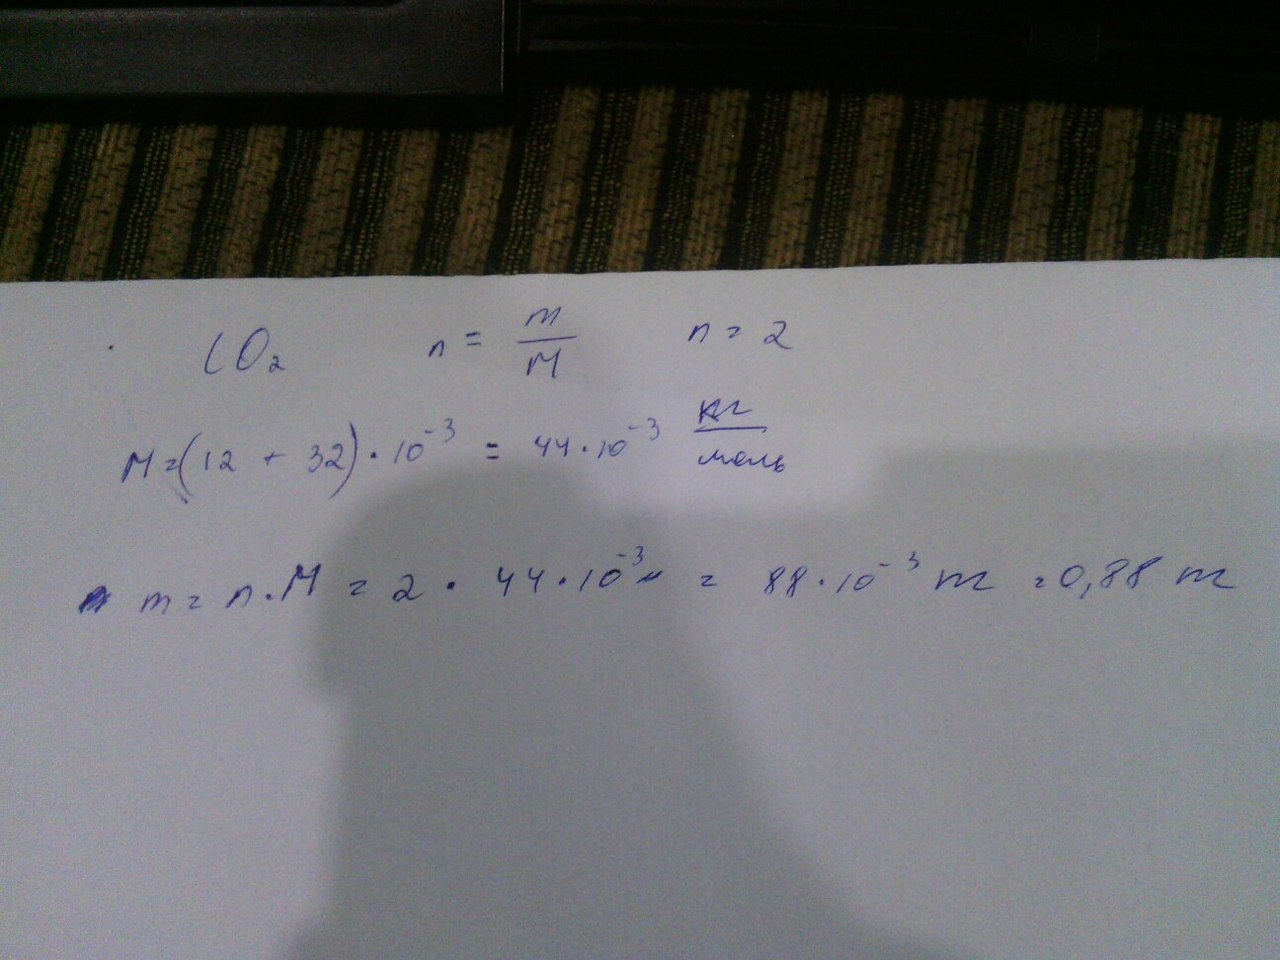 CO₂ n = m/M n = 2
M = (12 + 32) · 10⁻³ = 44 · 10⁻³ кг/моль
m = n · M = 2 · 44 · 10⁻³ = 88 · 10⁻³ кг = 0,88 кг